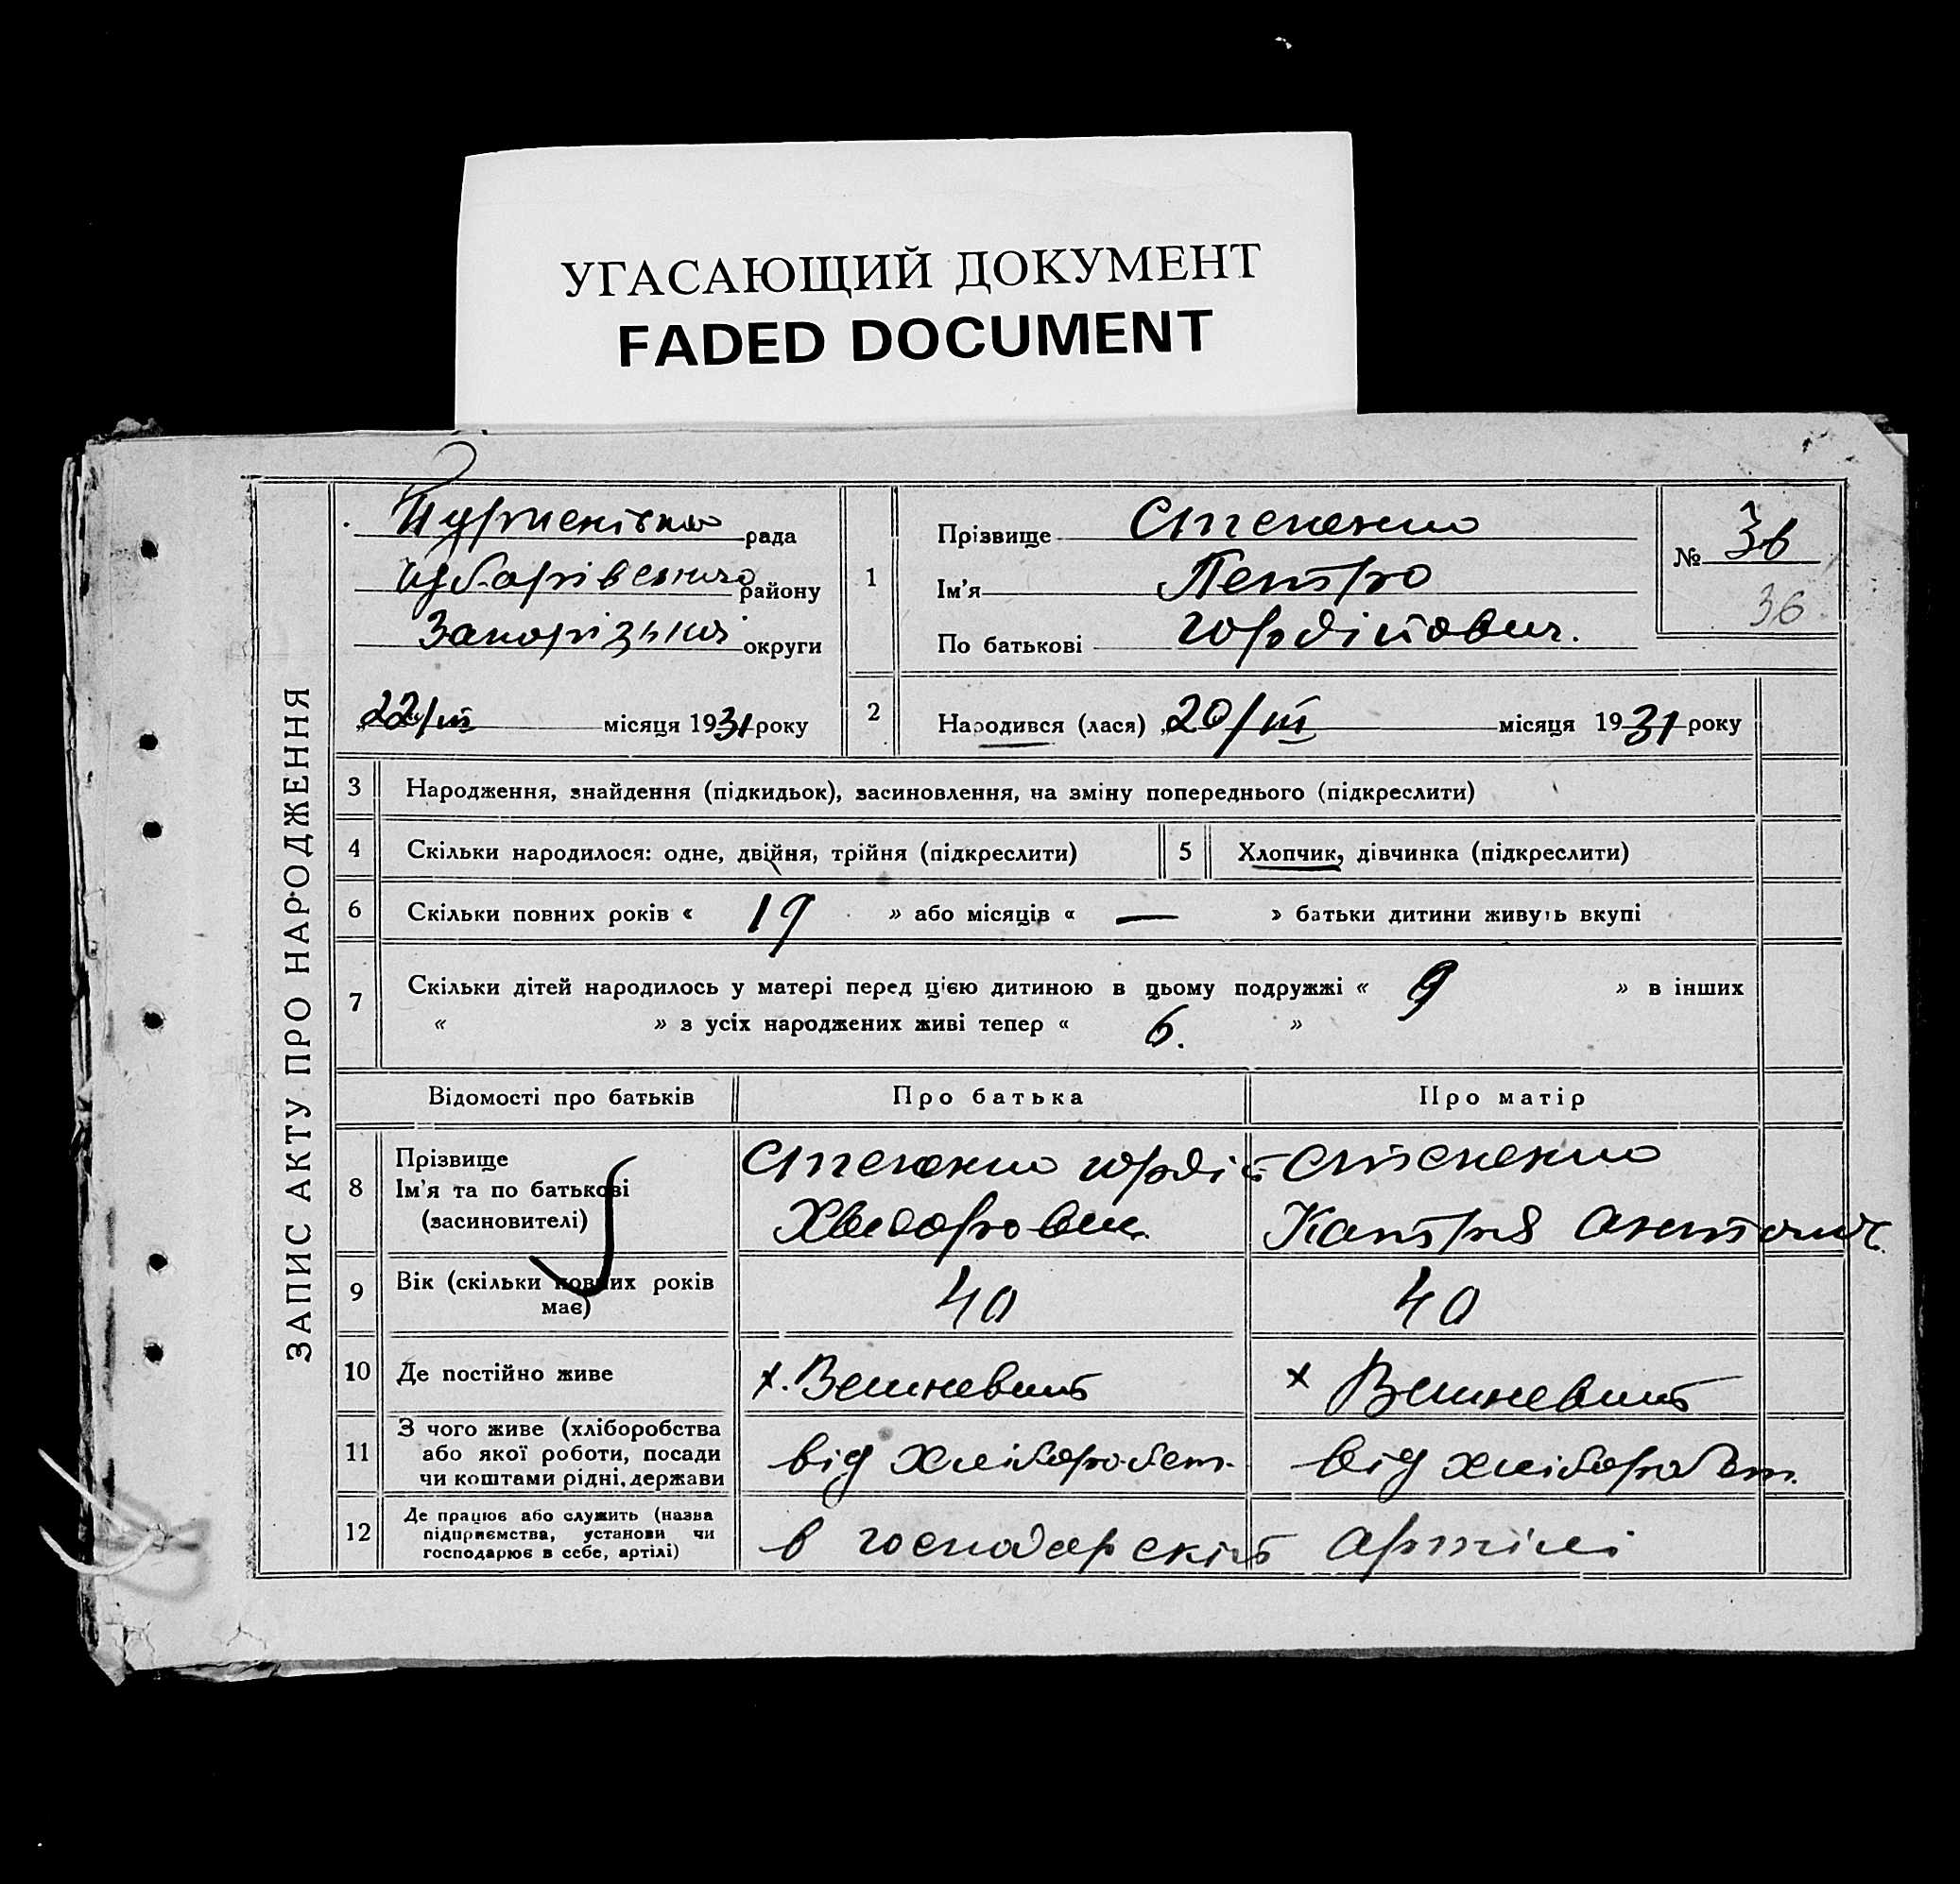 УГАСАЮЩИЙ ДОКУМЕНТ
FADED DOCUMENT
ЗАПИС АКТУ ПРО НАРОДЖЕННЯ
рада
району
Запорізької округи
22/III місяця 1931 року
1
Прізвище
Ім'я Петро
По батькові Гордійович.
№ 36
36
2
Народився (лася) „20/III місяця 1931 року
3 Народження, знайдення (підкидьок), засиновлення, на зміну попереднього (підкреслити)
4 Скільки народилося: одне, двійня, трійня (підкреслити) 5 Хлопчик, дівчинка (підкреслити)
6 Скільки повних років « 19 » або місяців « — » батьки дитини живуть вкупі
7 Скільки дітей народилось у матері перед цією дитиною в цьому подружжі « 9 » в інших
« » з усіх народжених живі тепер « 6. »
Відомості про батьків Про батька Про матір
8
Прізвище
Ім'я та по батькові
(засиновителі)
Гордій
Хведорович
Катря Антонів.
9 Вік (скільки повних років
має)
40 40
10 Де постійно живе
х. Вешневий х Вешневий
11
З чого живе (хліборобства
або якої роботи, посади
чи коштами рідні, держави
від хлібороб від хлібороб
12
Де працює або служить (назва
підприємства, установи чи
господарює в себе, артілі)
в господарскій артілі